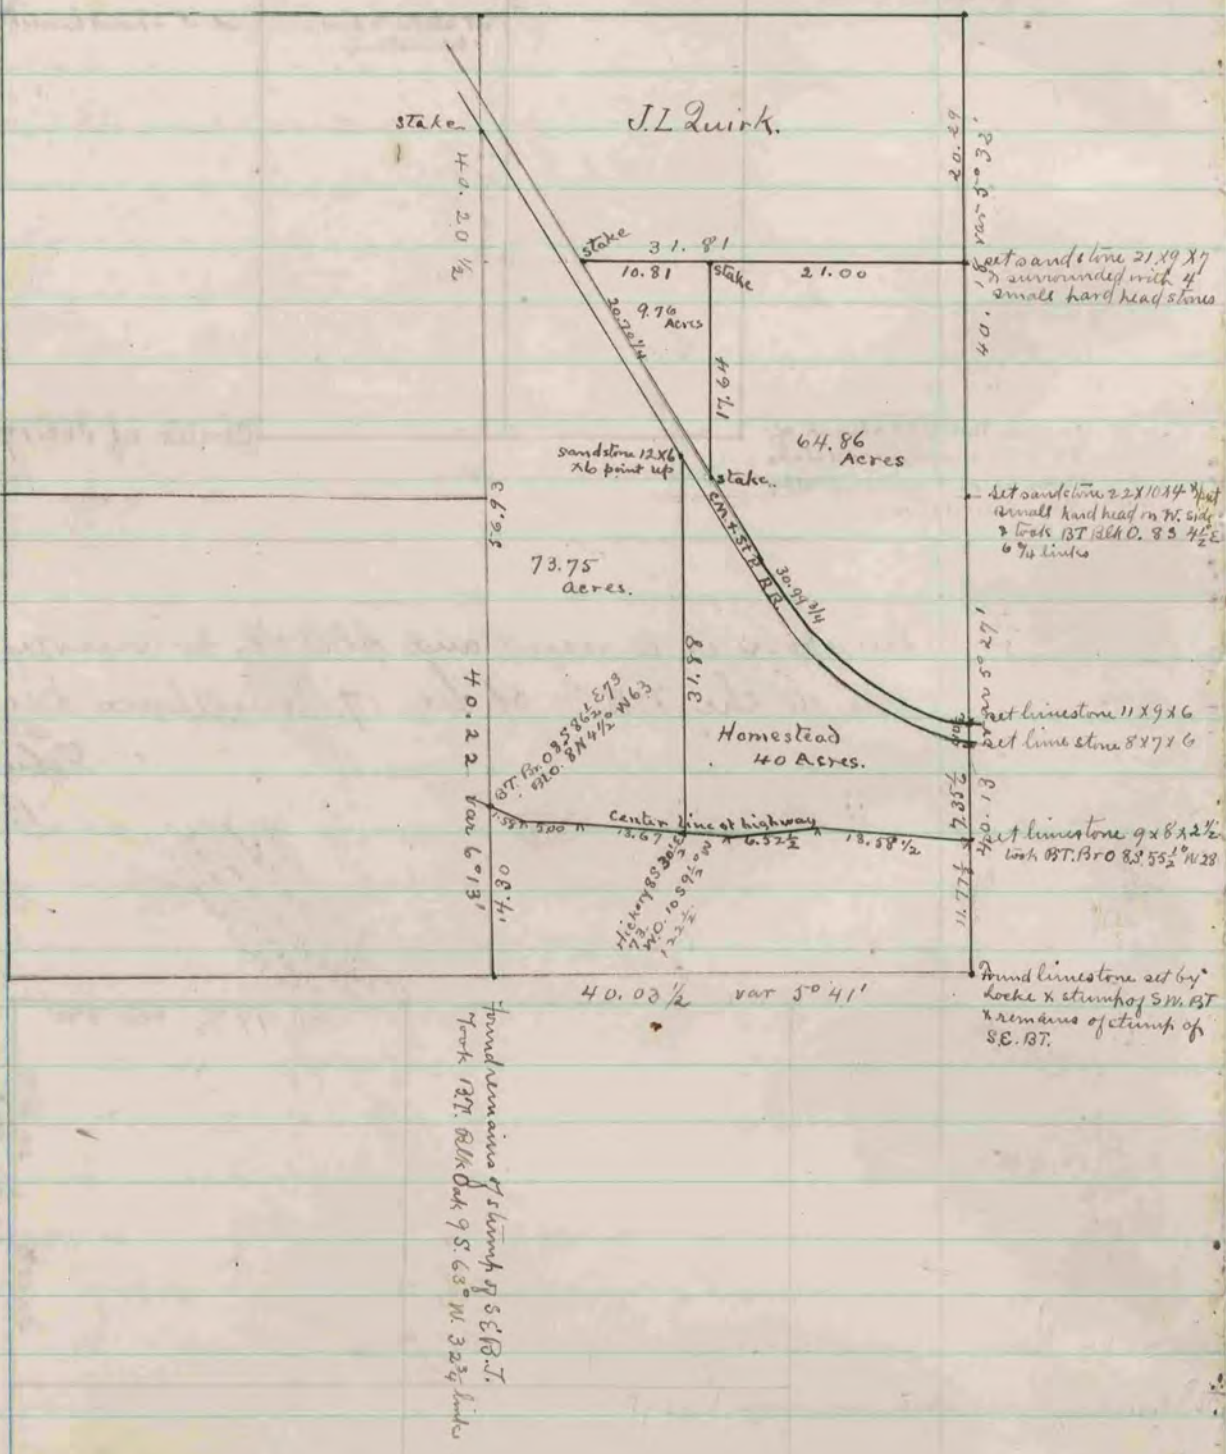 J. L Quirk.
stake
40. 20 1/2
20.29
40. 18 var 5° 32'
stake
31. 81
10.81
stake
21.00
set sandstone 21 X9 X7
& surrounded with 4
small hard head stones
9.76
Acres
20.70 1/4
17.64
64.86
Acres
sandstone 12X6
X6 point up
stake.
set sandstone 22X10X4 & put
small hard head on W. side
& took BT Blk O. 8 S 4 1/2 E
6 3/4 links
C M. & St P R R.
30.99 3/4
39.63
73.75
acres.
31.88
var 5° 27'
set limestone 11 X 9 X 6
set lime stone 8X7X6
Homestead
40 Acres.
BT. Br. O 8 S 86 1/2 E 73
Bl O. 8 N 4 1/2 W 63
40.22 var 6° 13'
1.58
5.00
Center line of highway
13.67
6.52 1/2
13.58 1/2
7.35 1/2
40.13
set limestone 9 x 8 x 2 1/2
took BT. Br O 8 S. 55 1/2° W 28
Hickory 8 S 30° E
73
W.O. 10 S 9 1/2° W
122 1/2
14.80
11.77 1/2
40.03 1/2 var 5° 41'
Found limestone set by
Locke & stump of S W. BT
& remains of stump of
S.E. BT.
Found remains of stump of S E B.T.
Took B.T. Blk Oak 9 S. 63° W. 32 3/4 links